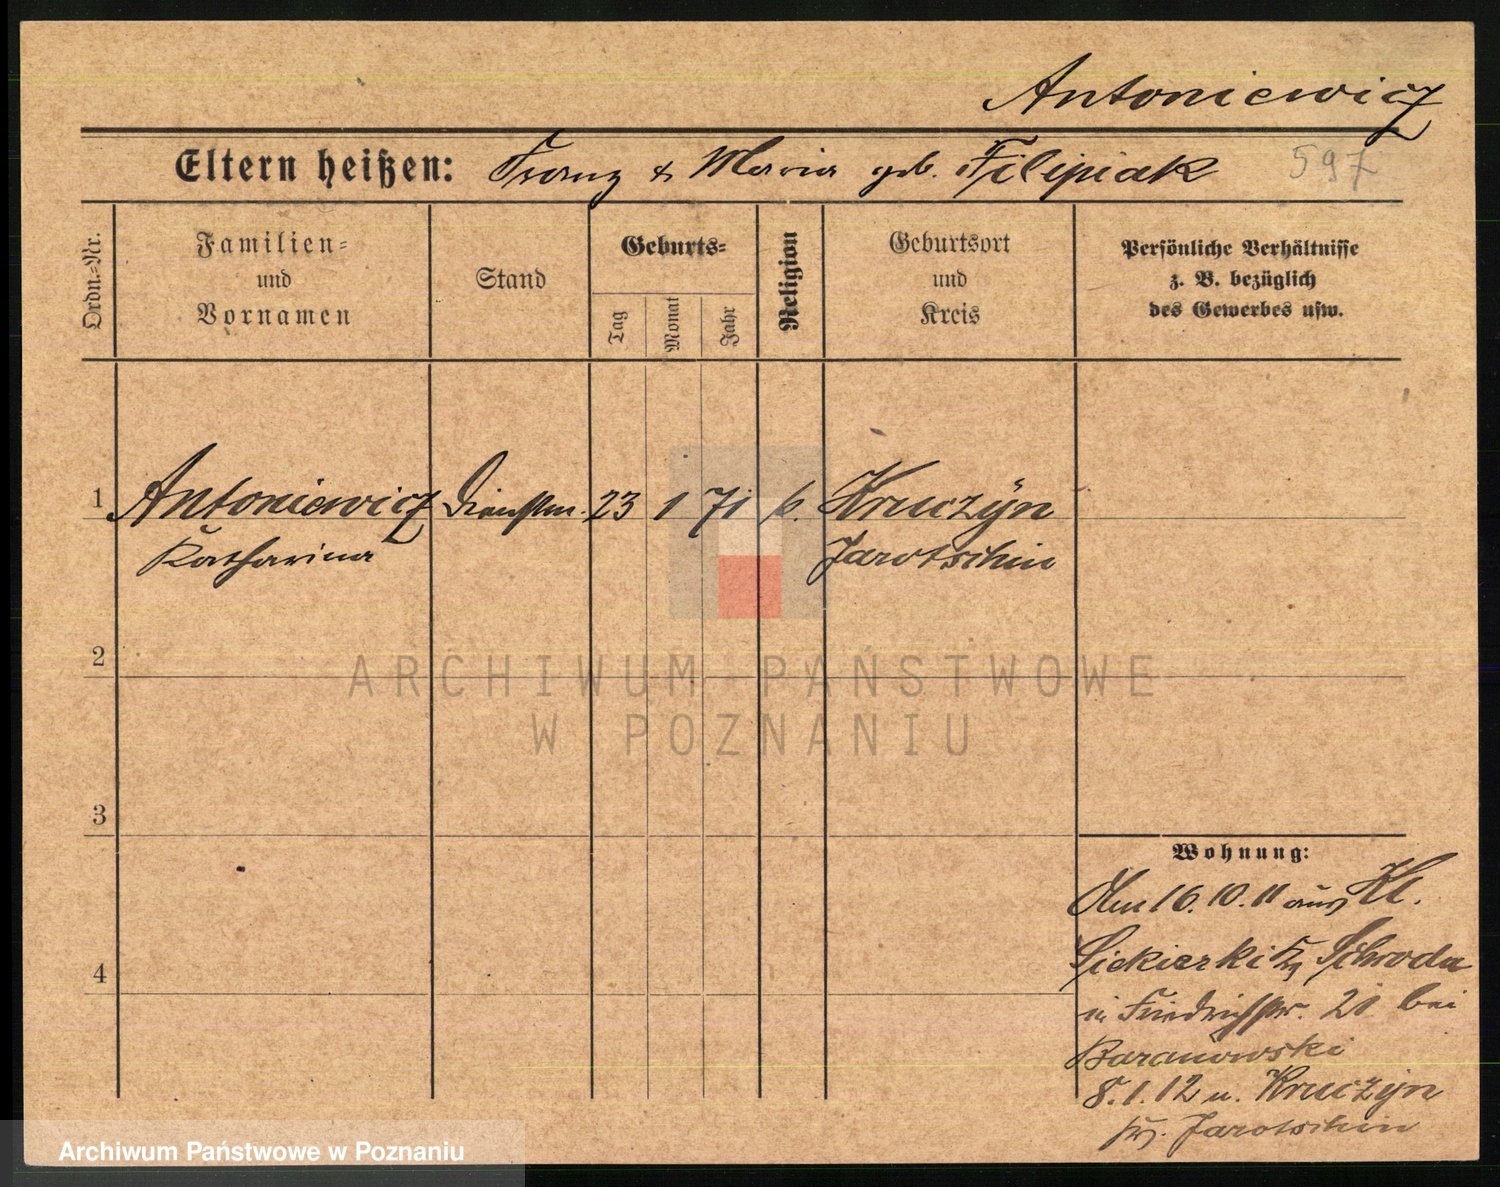 Antoniewicz
Eltern heißen: Franz & Maria geb. Filipiak 597
Ordn.-Nr.
Familien-
und
Vornamen
Stand
Geburts-
Tag
Monat
Jahr
Religion
Geburtsort
und
Kreis
Persönliche Verhältnisse
z. B. bezüglich
des Gewerbes usw.
1 Antoniewicz Dienstm. 23 1 71 k. Kruczýn
Katharina Jarotschin
2
3
4
Wohnung:
Am 16.10.11 aus Kl.
Siekierki Schroda
in Friedrichstr. 21 bei
Baranowski
8.1.12 n. Kruczýn
Jarotschin
ARCHIWUM PAŃSTWOWE
W POZNANIU
Archiwum Państwowe w Poznaniu